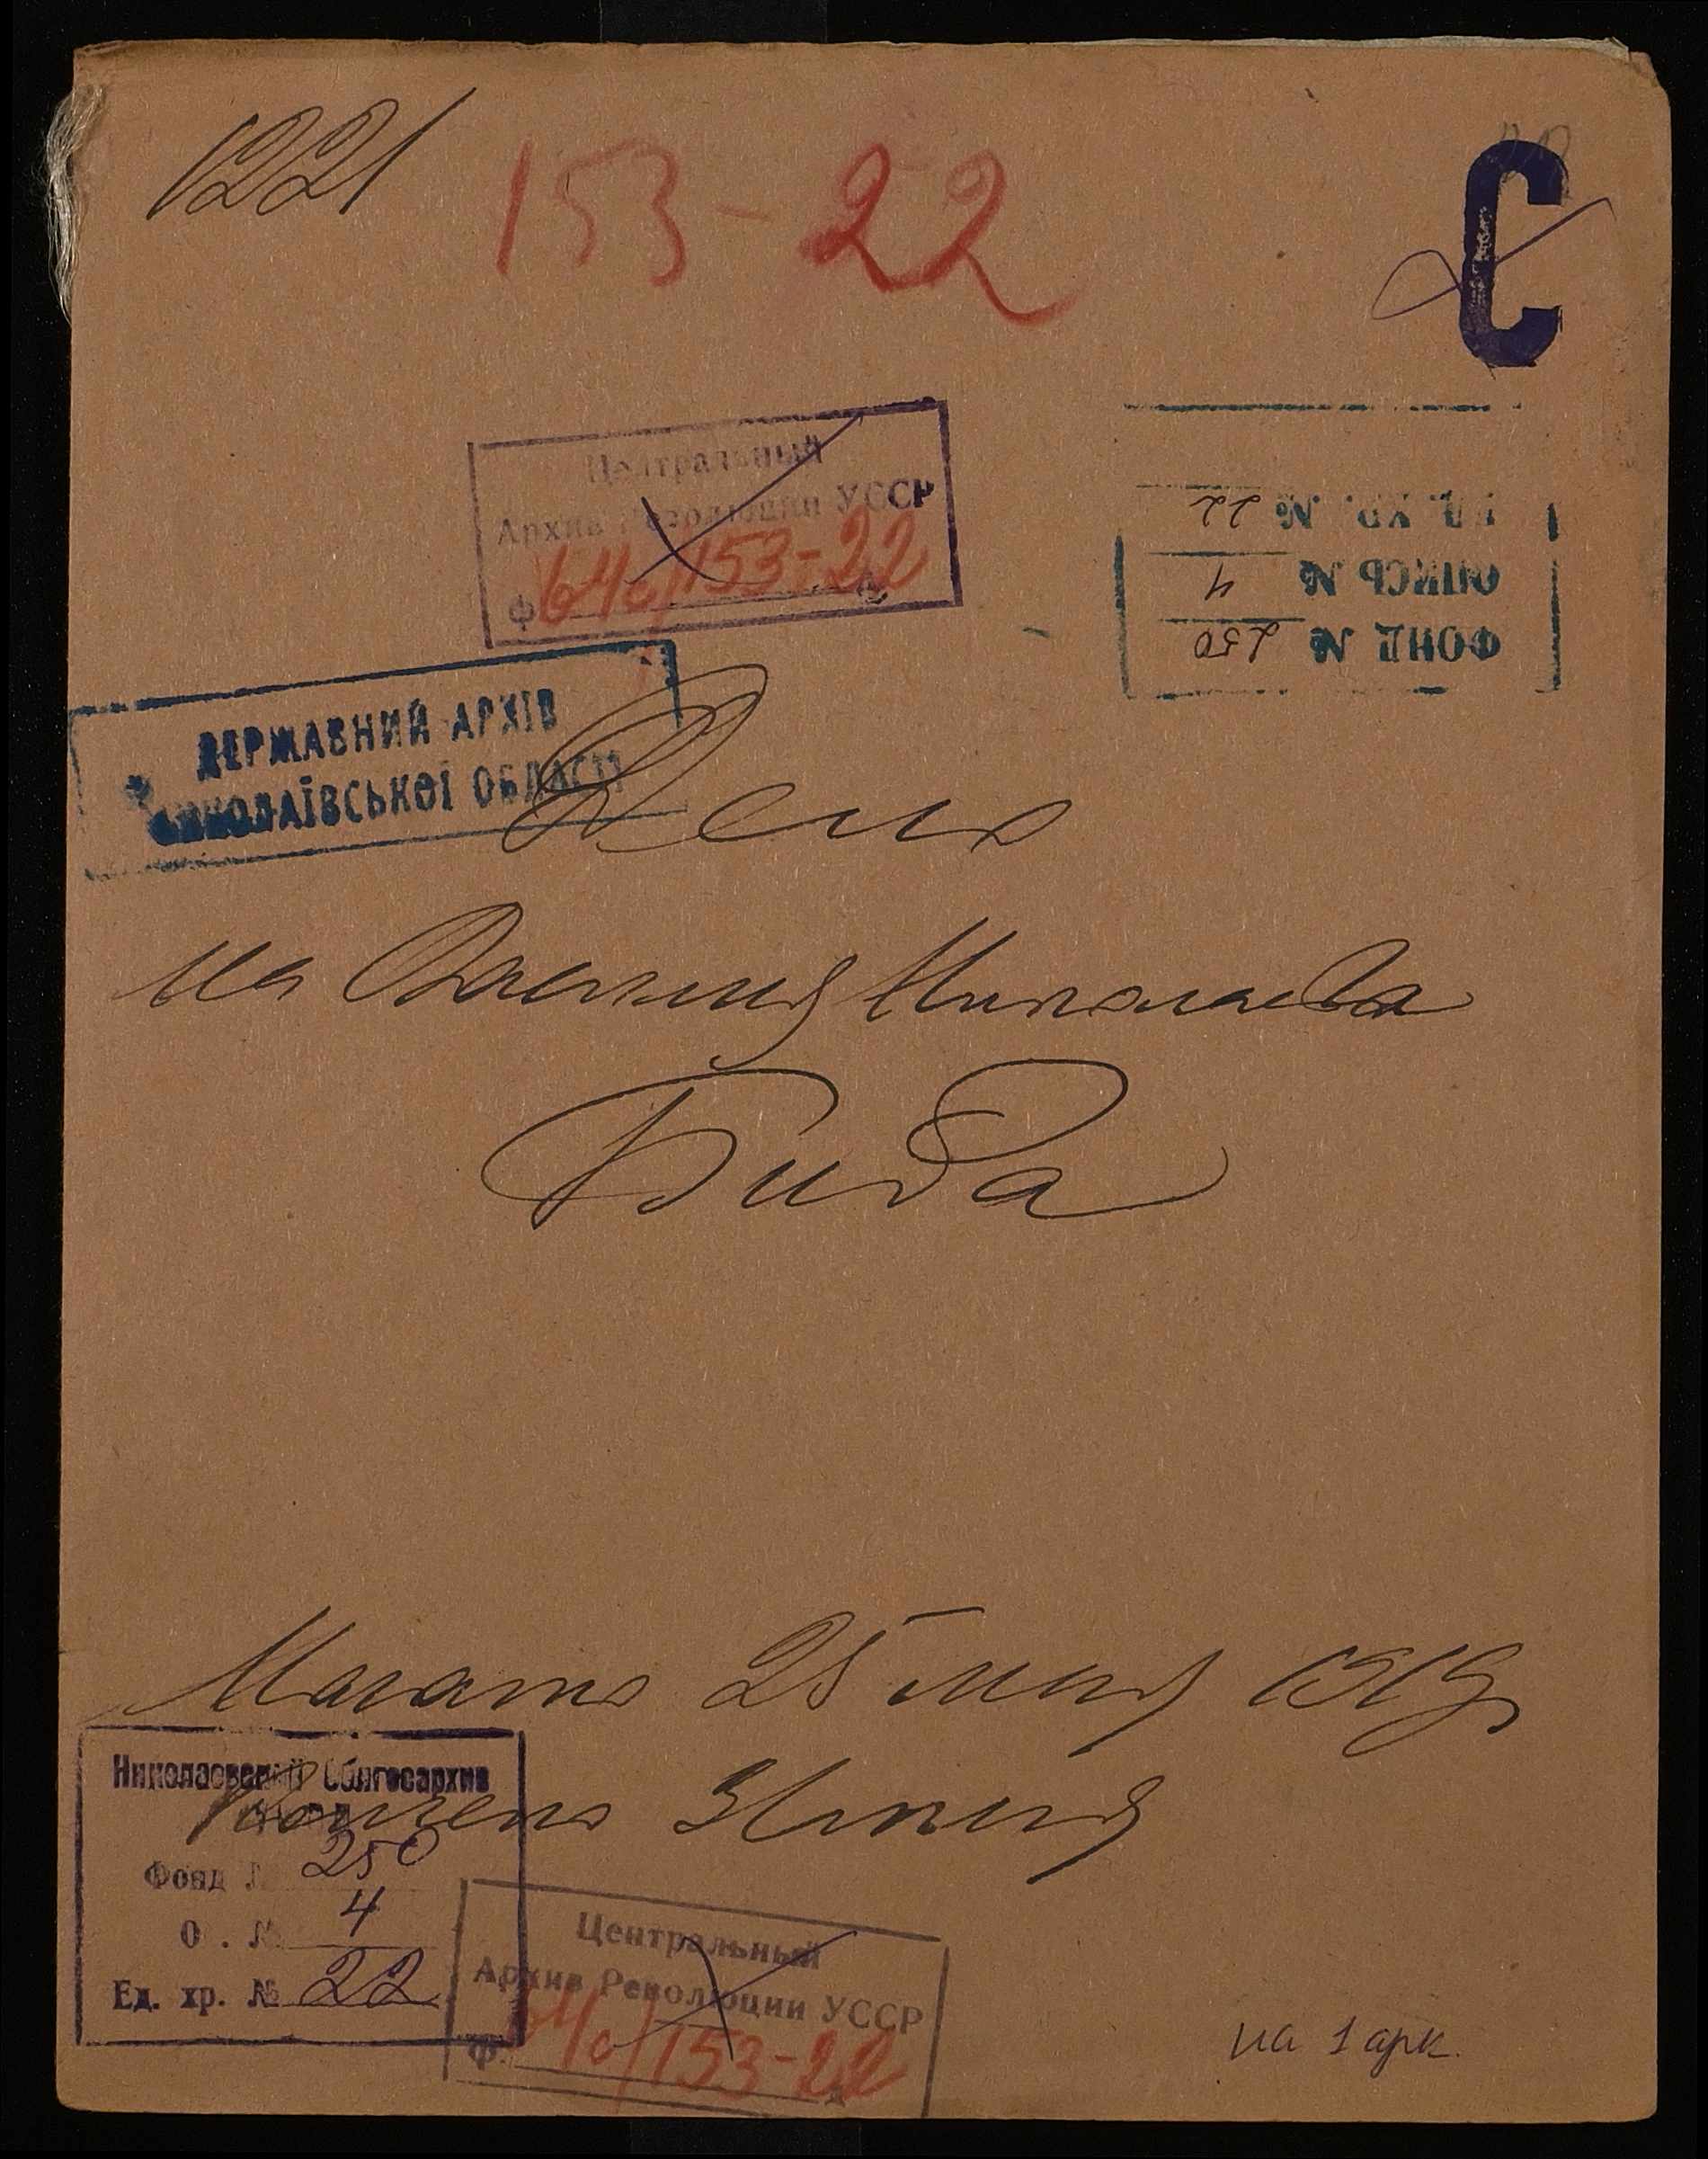 1221
153-22
С
Центральный
Архив Революции УССР
Ф 64с/153-22
ЕД. ХР. № 22
ОПИСЬ № 4
ФОНД № 250
ДЕРЖАВНИЙ АРХІВ
МИКОЛАЇВСЬКОЇ ОБЛАСТІ
Дело
На Василия Николаева
Бида
Начато 25 мая 1919
Кончено 31 мая
Николаевский Облгосархив
Фонд № 250
О . № 4
Ед. хр. № 22
Центральный
Архив Революции УССР
Ф. 64с/153-22
на 1 арк.